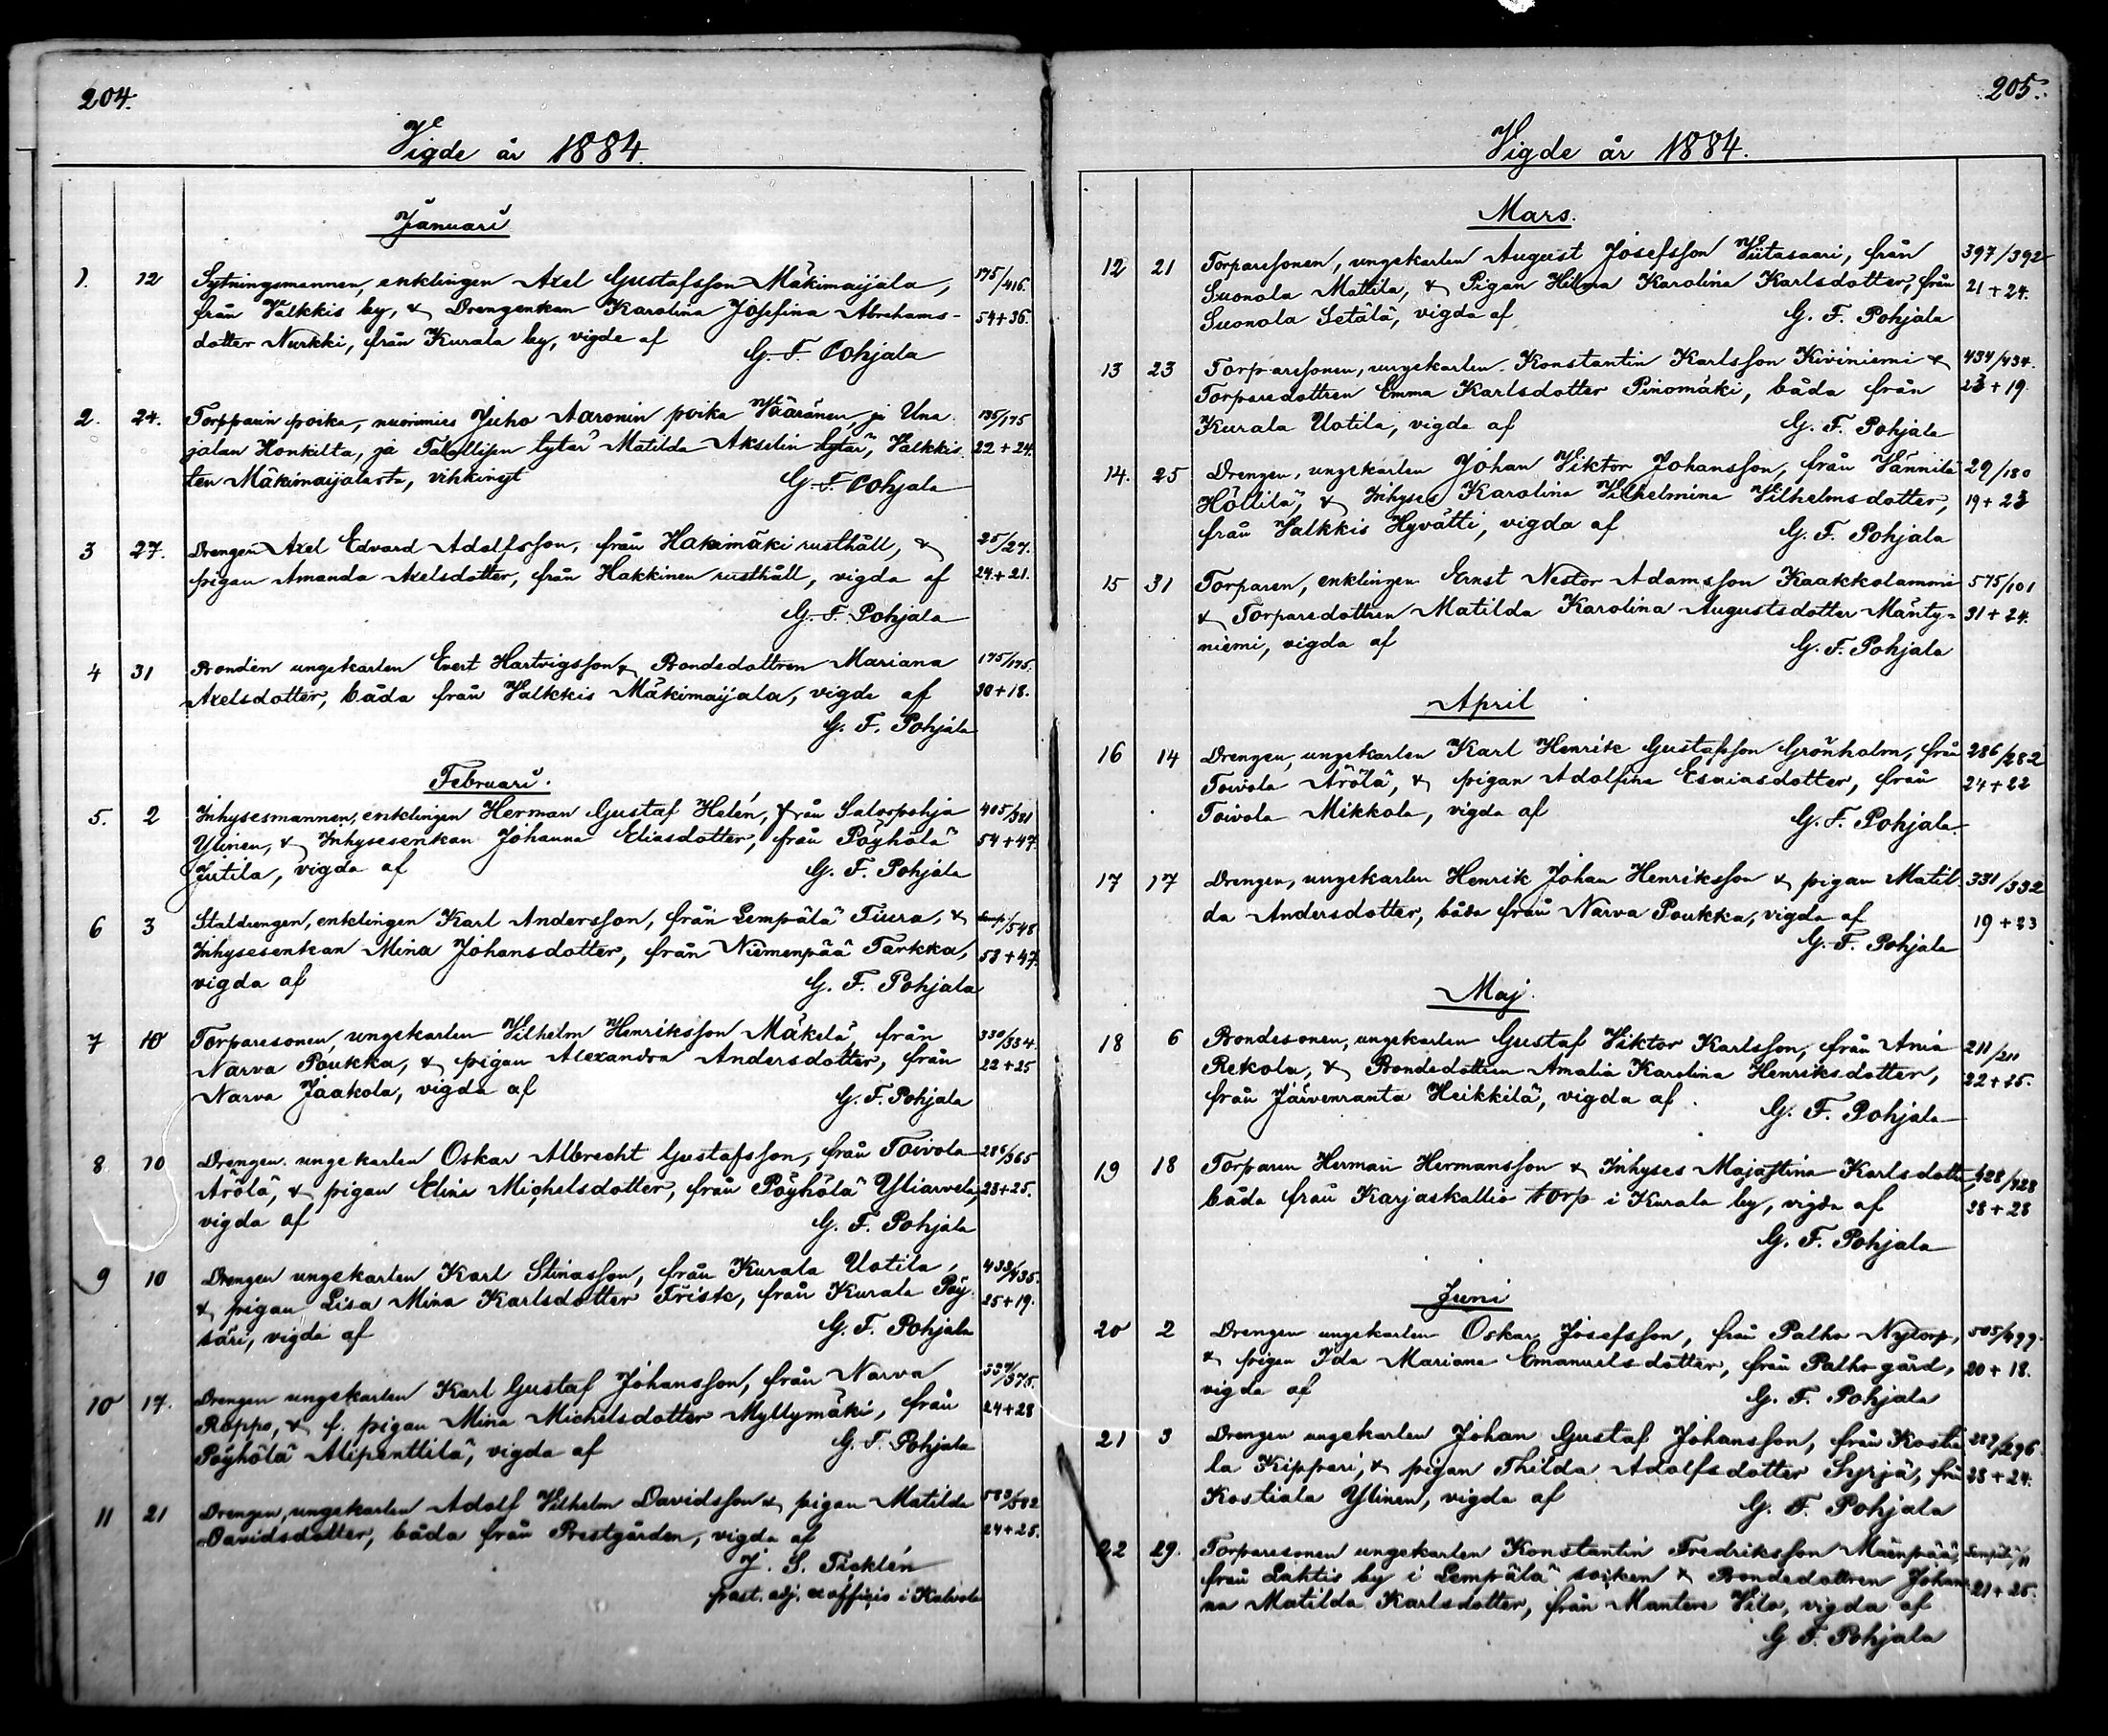 204.
Vigde år 1884.
Januari
1. 12 Sytningsmannen, enklingen Axel Gustafsson Mäkimaijala, 175/416.
från Valkkis by, & Drengenkan Karolina Josefina Abrahams- 54+36.
dotter Nurkki, från Kurala by, vigda af
G. F. Pohjala
2. 24. Torpparin poika, nuorimies Juho Aaronin poika Vääränen, ja Una 195/175
jalan Honkilta, ja Talollisen tytär Matilda Akselin tytär, Valkkis 22+24.
ten Mäkimaijalasta, vihkinyt G. F. Pohjala
3 27. Drengen Axel Edvard Adolfsson, från Hakimäki rusthåll, & 25/27.
pigan Amanda Axelsdotter, från Hakkinen rusthåll, vigda af 24+21.
G. F. Pohjala
4 31 Bonden ungekarlen Evert Hartvigsson & Bondedottren Mariana 175/175.
Axelsdotter, båda från Valkkis Mäkimaijala, vigda af 30+18.
G. F. Pohjala
Februari.
5. 2 Inhysesmannen, enklingen Herman Gustaf Helén, från Satorpohja 405/321
Ylinen, & Inhysesenkan Johanna Eliasdotter, från Pöyhölä 54+47.
Jutila, vigda af G. F. Pohjala
6 3 Staldrengen, enklingen Karl Andersson, från Lempälä Tiura, & Lemp/548
Inhysesenkan Mina Johansdotter, från Niemenpää Tarkka, 53+47.
vigda af G. F. Pohjala
7 10 Torparesonen, ungekarlen Vilhelm Henriksson Mäkelä, från 330/334.
Narva Poukka, & pigan Alexandra Andersdotter, från 22+25
Narva Jaakola, vigda af G. F. Pohjala
8 10 Drengen ungekarlen Oskar Albrecht Gustafsson, från Toivola 286/365
Arölä, & pigan Elina Michelsdotter, från Pöyhölä Yliarvela, 23+25.
vigda af G. F. Pohjala
9 10 Drengen ungekarlen Karl Stinasson, från Kurala Uotila, 433/435.
& pigan Lisa Mina Karlsdotter Frisk, från Kurala Pöy 25+19.
säri, vigda af G. F. Pohjala
10 17. Drengen ungekarlen Karl Gustaf Johansson, från Narva 337/375.
Roppo, & f. pigan Mina Michelsdotter Myllymäki, från 24+28
Pöyhölä Alipenttilä, vigda af G. F. Pohjala
11 21 Drengen, ungekarlen Adolf Vilhelm Davidsson & pigan Matilda 582/582
Davidsdotter, båda från Prestgården, vigda af 24+25.
J. S. Ticklén
past. adj. ex officio i Kalvola
205.
Vigde år 1884.
Mars.
12 21 Torparesonen, ungekarlen August Josefsson Viitasaari, från 397/392
Suonola Mattila, & Pigan Hilma Karolina Karlsdotter, från 21+24.
Suonola Setälä, vigda af G. F. Pohjala
13 23 Torparesonen, ungekarlen Konstantin Karlsson Kiviniemi & 434/434.
Torparedottren Emma Karlsdotter Pinomäki, båda från 23+19.
Kurala Uotila, vigda af G. F. Pohjala
14. 25 Drengen, ungekarlen Johan Viktor Johansson, från Vännilä 29/180
Höllilä, & Inhyses Karolina Vilhelmina Vilhelmsdotter, 19+23
från Valkkis Hyvätti, vigda af G. F. Pohjala
15 31 Torparen, enklingen Ernst Nestor Adamsson Kaakkolammi 575/101
& Torparedottren Matilda Karolina Augustsdotter Mänty- 31+24.
niemi, vigda af G. F. Pohjala
April
16 14 Drengen, ungekarlen Karl Henrik Gustafsson Grönholm, från 286/282
Toivola Arölä, & pigan Adolfina Esaiasdotter, från 24+22
Toivola Mikkola, vigda af G. F. Pohjala.
17 17 Drengen, ungekarlen Henrik Johan Henriksson & pigan Matil 331/332
da Andersdotter, båda från Narva Poukka, vigda af 19+23
G. F. Pohjala
Maj.
18 6 Bondesonen, ungekarlen Gustaf Viktor Karlsson, från Ania 211/211
Rekola, & Bondedottren Amalia Karolina Henriksdotter, 22+25.
från Järvenranta Heikkilä, vigda af G. F. Pohjala
19 18 Torparen Herman Hermansson & Inhyses Majastina Karlsdotter, 428/428
båda från Karjaskallio torp i Kurala by, vigda af 38+28
G. F. Pohjala
Juni
20 2 Drengen ungekarlen Oskar Josefsson, från Palho Nytorp, 505/499.
& pigan Ida Mariana Emanuelsdotter, från Palho gård, 20+18.
vigda af G. F. Pohjala
21 3 Drengen ungekarlen Johan Gustaf Johansson, från Kostia 287/296
la Kippari, & pigan Thilda Adolfsdotter Syrjä, från 23+24.
Kostiala Ylinen, vigda af G. F. Pohjala
22 29. Torparesonen ungekarlen Konstantin Fredriksson Mäenpää,
från Lahtis by i Lempälä socken & Bondedottren Johan 21+25.
na Matilda Karlsdotter, från Mantere Vilo, vigda af
G. F. Pohjala